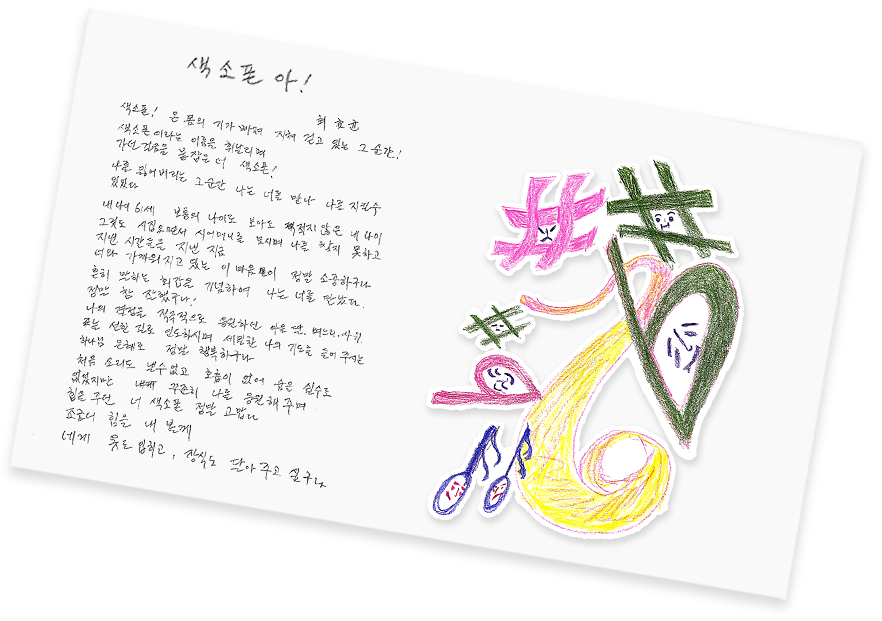 색소폰 아!
색소폰! 온 몸의 기가 빠져 지쳐 걷고 있는 그 순간!
색소폰이라는 이름을 휘날리며
가던 걸음을 붙잡은 너 색소폰!
나를 잃어버리는 그 순간 나는 너를 만나 나를 지킬 수
있었다
내 나이 61세 보통의 나이로 보아도 적지 않은 내 나이
그것도 시집오면서 시어머니를 모시며 나를 찾지 못하고
지낸 시간들을 지낸 지금
너와 가까워지고 있는 이 마음들이 정말 소중하구나
흔히 맞는 회갑을 기념하여 나는 너를 만났다.
정말 참 잘했구나!
나의 결정을 적극적으로 응원하던 아들 딸, 며느리, 사위
또는 선한 길로 인도하시며 세밀한 나의 기도를 들어 주시는
하나님 은혜로 정말 행복하구나
처음 소리도 낼 수 없고 호흡이 없어 숨은 실수도
있었지만 내게 꾸준히 나를 응원해 주며
힘을 주던 너 색소폰 정말 고맙다
조금 더 힘을 내 볼께
네게 옷도 입히고, 장식도 달아 주고 싶구나